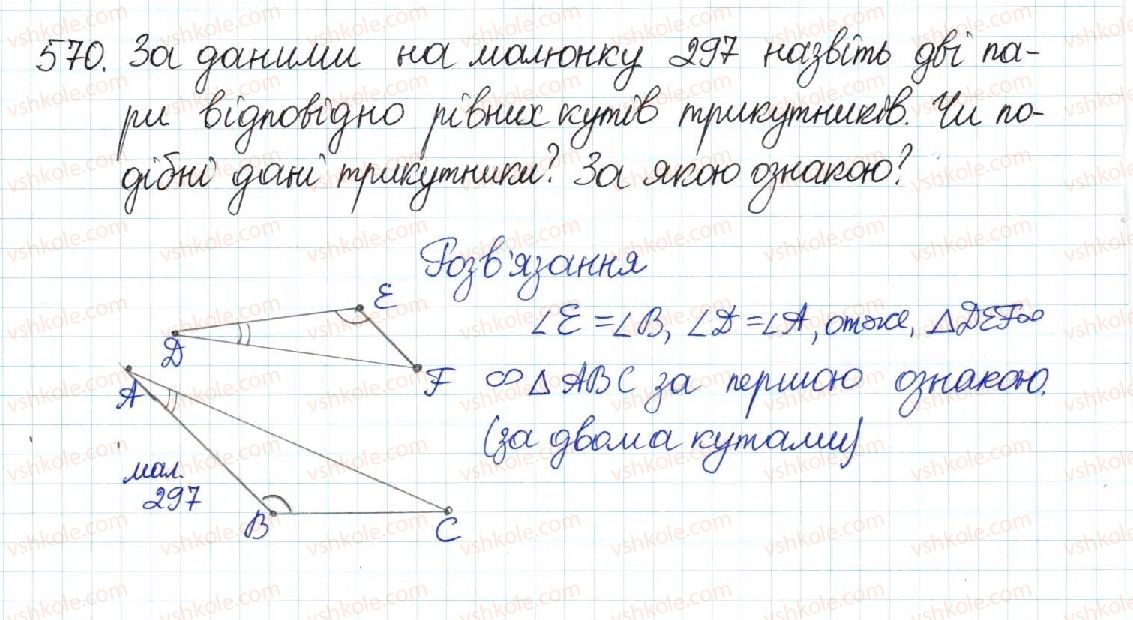 570. За даними на малюнку 297 назвіть дві па-
ри відповідно рівних кутів трикутників. Чи по-
дібні дані трикутники? За якою ознакою?
Розв'язання
∠E = ∠B, ∠D = ∠A, отже, △DEF∞
∞ △ABC за першою ознакою.
(за двома кутами)
E
D
F
A
B
C
мал.
297
vshkole.com